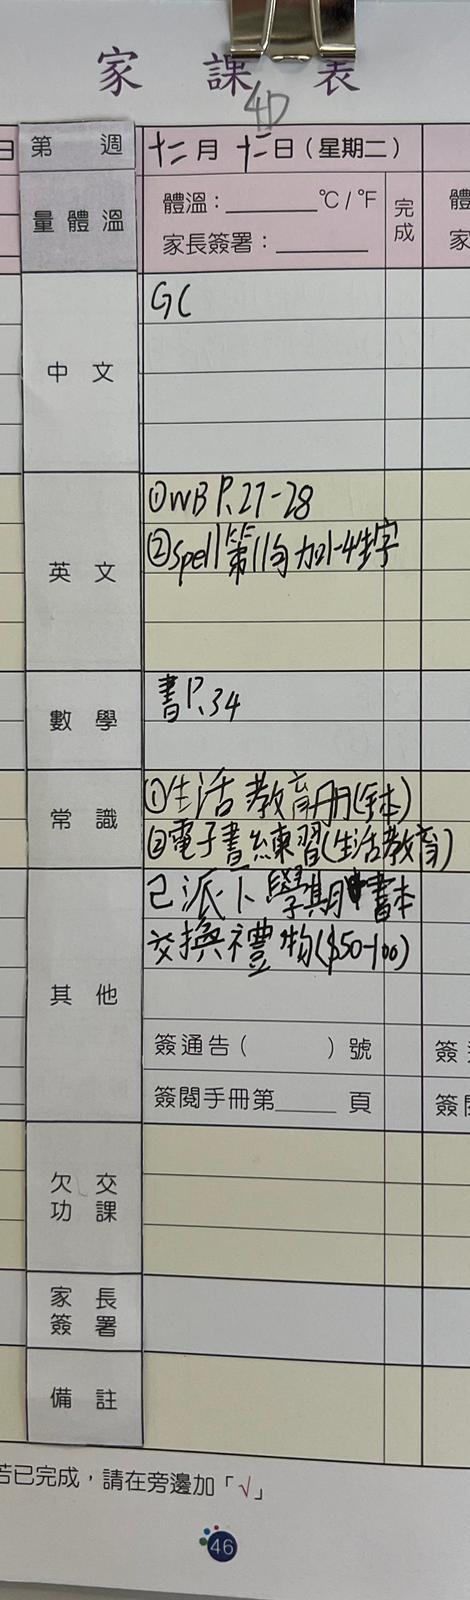 家課表
4D
日
第 週
十二月十二日(星期二)
量體溫
體溫:________℃/℉
家長簽署:________
完成
體
家
中文
GC
英文
①WB P.27-28
②spell 第11句加1-4生字
數學
書P.34
常識
①生活教育冊(全本)
②電子書練習(生活教育)
其他
已派下學期書本
交換禮物($50-100)
簽通告( )號
簽閱手冊第____頁
簽
簽
欠交功課
家長簽署
備註
若已完成,請在旁邊加「√」
46